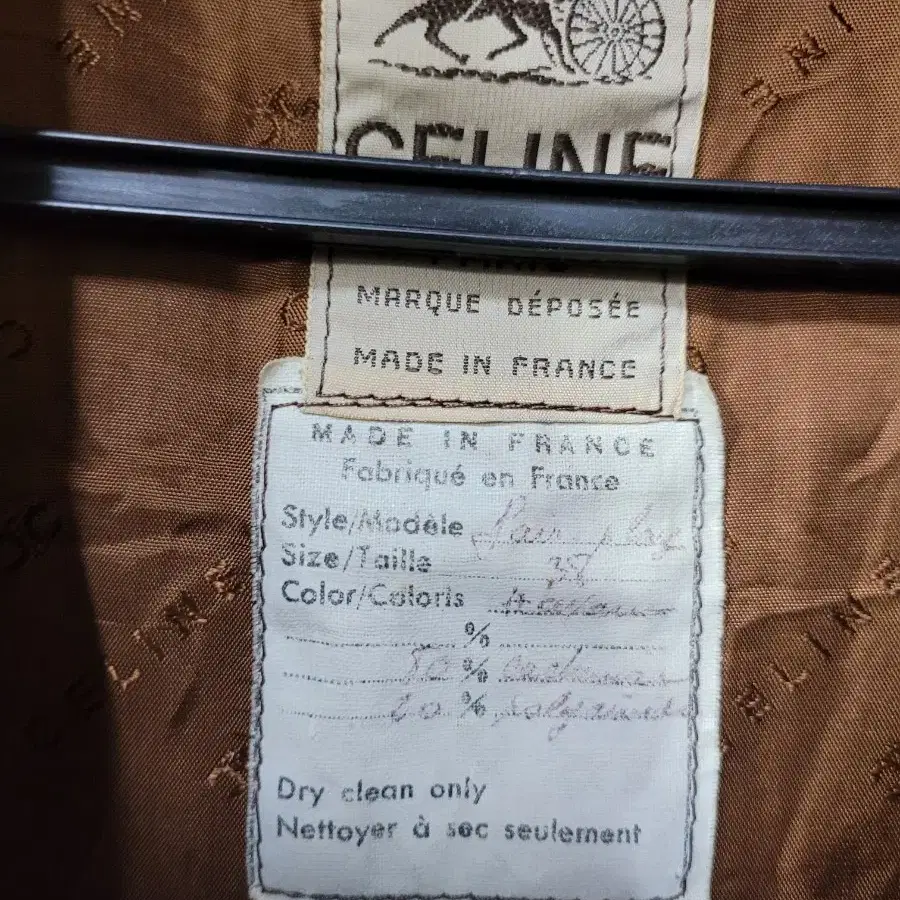 CELINE
PARIS
MARQUE DÉPOSÉE
MADE IN FRANCE
MADE IN FRANCE
Fabriqué en France
Style/Modèle
Size/Taille 38
Color/Coloris
%
80 %
20 % polyamide
Dry clean only
Nettoyer à sec seulement
CELINE
CELINE